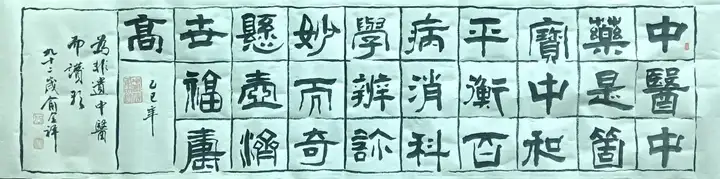 中醫中
藥是箇
寶中和
平衡百
病消科
學辨診
妙而奇
懸壺濟
世福壽
高
乙巳年
為非遺中醫
而讚頌
九十二歲俞祥